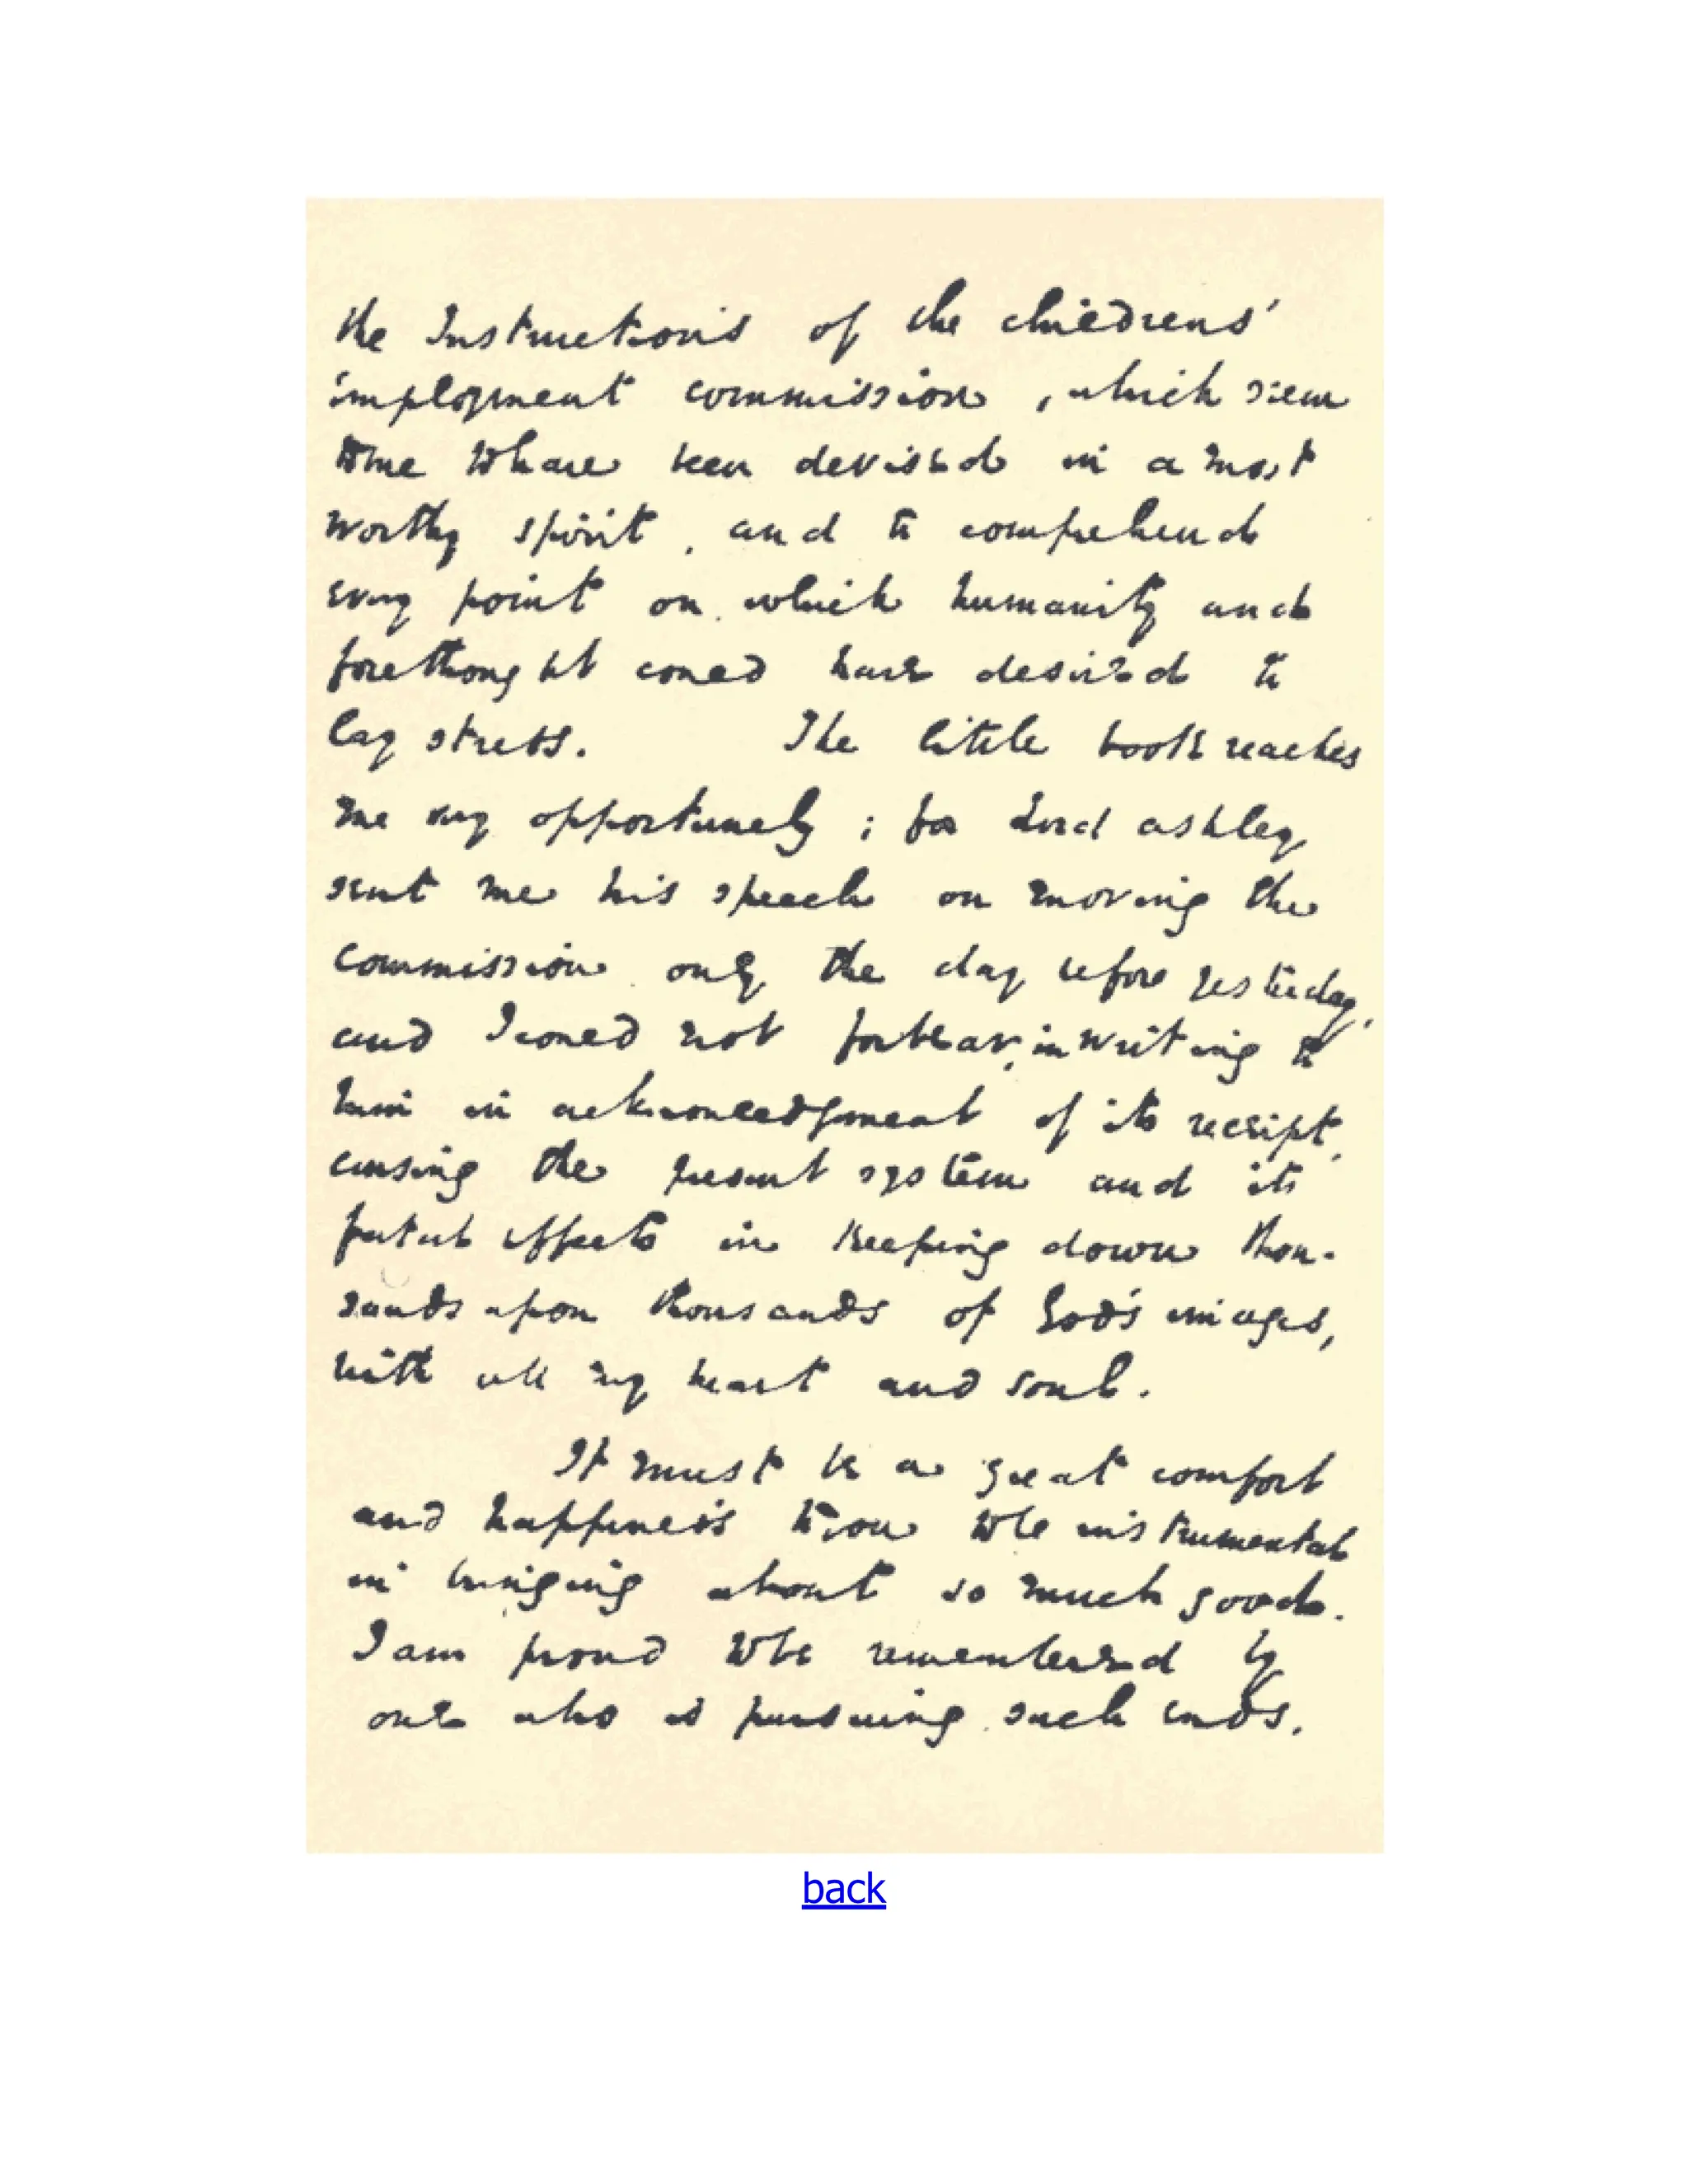 the Instructions of the childrens'
employment commission, which seem
to me to have been devised in a most
worthy spirit, and to comprehend
every point on which humanity and
forethought could have desired to
lay stress. The little book reaches
me very opportunely; for Lord Ashley
sent me his speech on moving the
commission only the day before yesterday,
and I could not forbear, in writing to
him in acknowledgment of its receipt,
cursing the present system and its
fatal effects in keeping down thou-
sands upon thousands of God's images,
with all my heart and soul.
It must be a great comfort
and happiness to you to be instrumental
in bringing about so much good.
I am proud to be remembered by
one who is pursuing such ends.
back